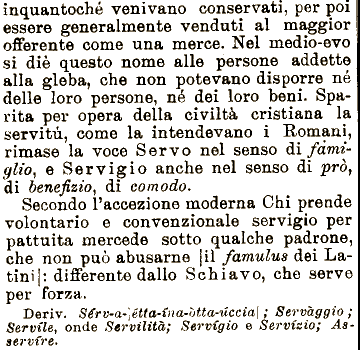 inquantoché venivano conservati, per poi
essere generalmente venduti al maggior
offerente come una merce. Nel medio-evo
si diè questo nome alle persone addette
alla gleba, che non potevano disporre né
delle loro persone, né dei loro beni. Spa-
rita per opera della civiltà cristiana la
servitú, come la intendevano i Romani,
rimase la voce Servo nel senso di fámi-
glio, e Servigio anche nel senso di prò,
di benefizio, di comodo.
Secondo l'accezione moderna Chi prende
volontario e convenzionale servigio per
pattuita mercede sotto qualche padrone,
che non può abusarne |il famulus dei La-
tini|: differente dallo Schiavo, che serve
per forza.
Deriv. Sérv-a-|étta-ína-òtta-úccia|; Servàggio;
Servíle, onde Servilità; Servígio e Servízio; As-
servíre.